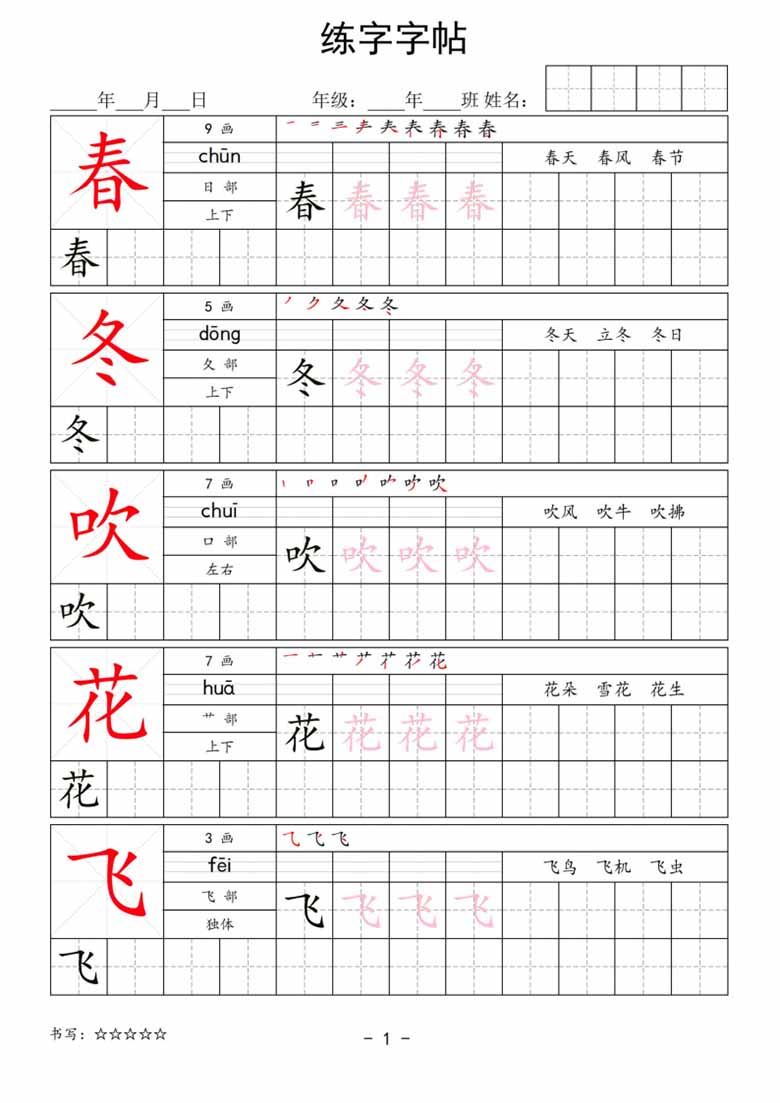 练字字帖
_____年___月___日 年级: ____年____班 姓名:
春 9 画
chūn 春天 春风 春节
日 部 春 春 春 春
上下
春
冬 5 画
dōng 冬天 立冬 冬日
夂 部 冬 冬 冬 冬
上下
冬
吹 7 画
chuī 吹风 吹牛 吹拂
口 部 吹 吹 吹 吹
左右
吹
花 7 画
huā 花朵 雪花 花生
艹 部 花 花 花 花
上下
花
飞 3 画
fēi 飞鸟 飞机 飞虫
飞 部 飞 飞 飞 飞
独体
飞
书写: ☆☆☆☆☆ - 1 -